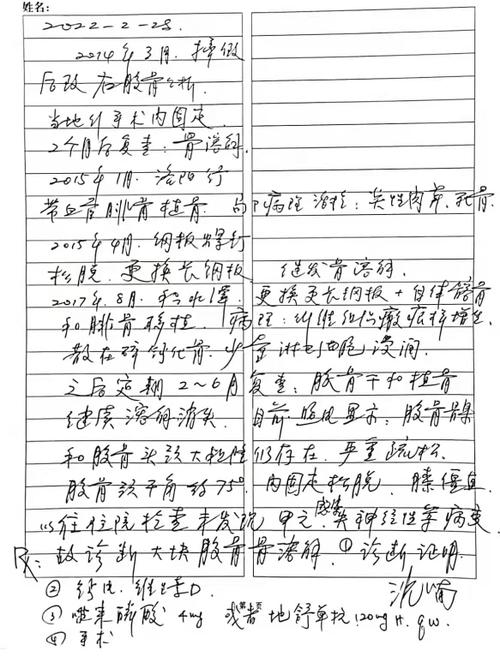 姓名:
2022-2-28.
2014年3月. 摔做
后致右股骨分折.
当地行手术内固定.
2个月后复查: 骨溶解.
2015年1月. 洛阳行
带血管腓骨植骨. 病理 炎性肉芽. 死骨
2015年4月. 钢板螺钉
松脱. 更换长钢板 继发骨溶解.
2017年.8月. 积水潭. 更换更长钢板 + 自体髂骨
和腓骨移植. 病理: 纤维组织瘢痕样增生.
散在碎钙化骨. 少量淋巴细胞浸润.
之后定期2~6月复查: 股骨干和植骨
继续溶解消失. 目前. 照见显示: 股骨髁
和股骨头颈大粗隆仍存在. 严重疏松.
股骨颈干角约75° 内固定松脱. 膝僵直.
以往住院检查未发现 甲亢. 感染 神经性等病变.
Rx: 故诊断大块股骨骨溶解. ① 诊断证明.
② 钙片. 维生素D.
③ 唑来膦酸 4mg 或者地舒单抗 120mg H. qw.
④ 手术